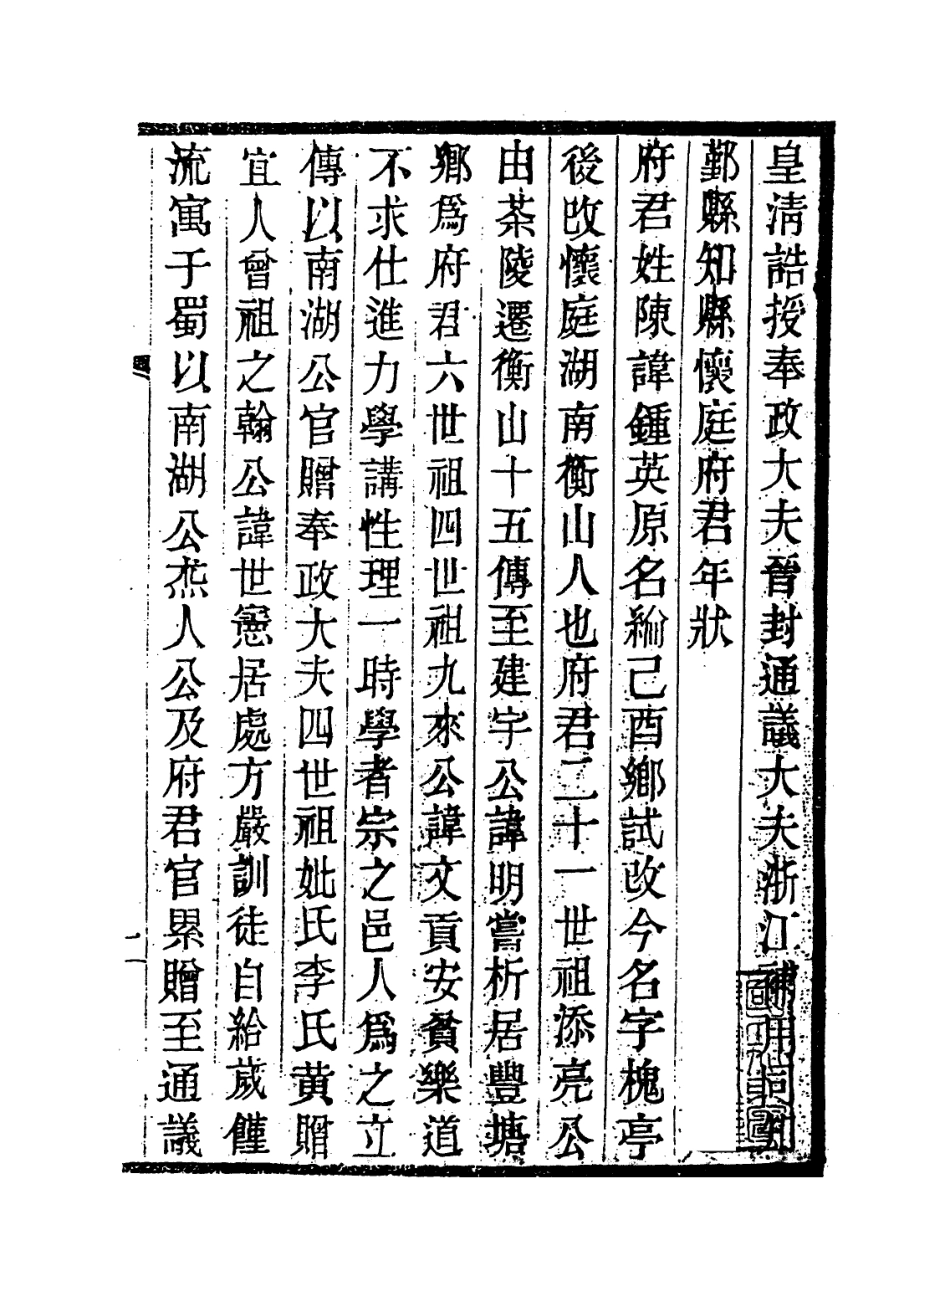 皇淸誥授奉政大夫晉封通議大夫浙江補用同知
鄞縣知縣懷庭府君年狀
府君姓陳諱鍾英原名綸己酉鄉試改今名字槐亭
後改懷庭湖南衡山人也府君二十一世祖添亮公
由茶陵遷衡山十五傳至建宇公諱明嘗析居豐塘
鄉爲府君六世祖四世祖九來公諱文貢安貧樂道
不求仕進力學講性理一時學者宗之邑人爲之立
傳以南湖公官贈奉政大夫四世祖妣氏李氏黄贈
宜人曾祖之翰公諱世憲居處方嚴訓徒自給歲饉
流寓于蜀以南湖公烝人公及府君官累贈至通議